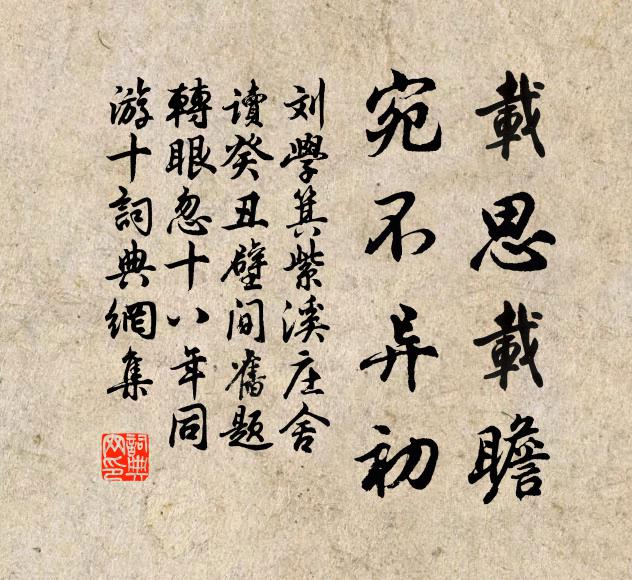 載思載瞻
宛不异初
刘學箕紫溪庄舍
讀癸丑壁间舊题
轉眼忽十八年同
游十詞典網集
詞典网印